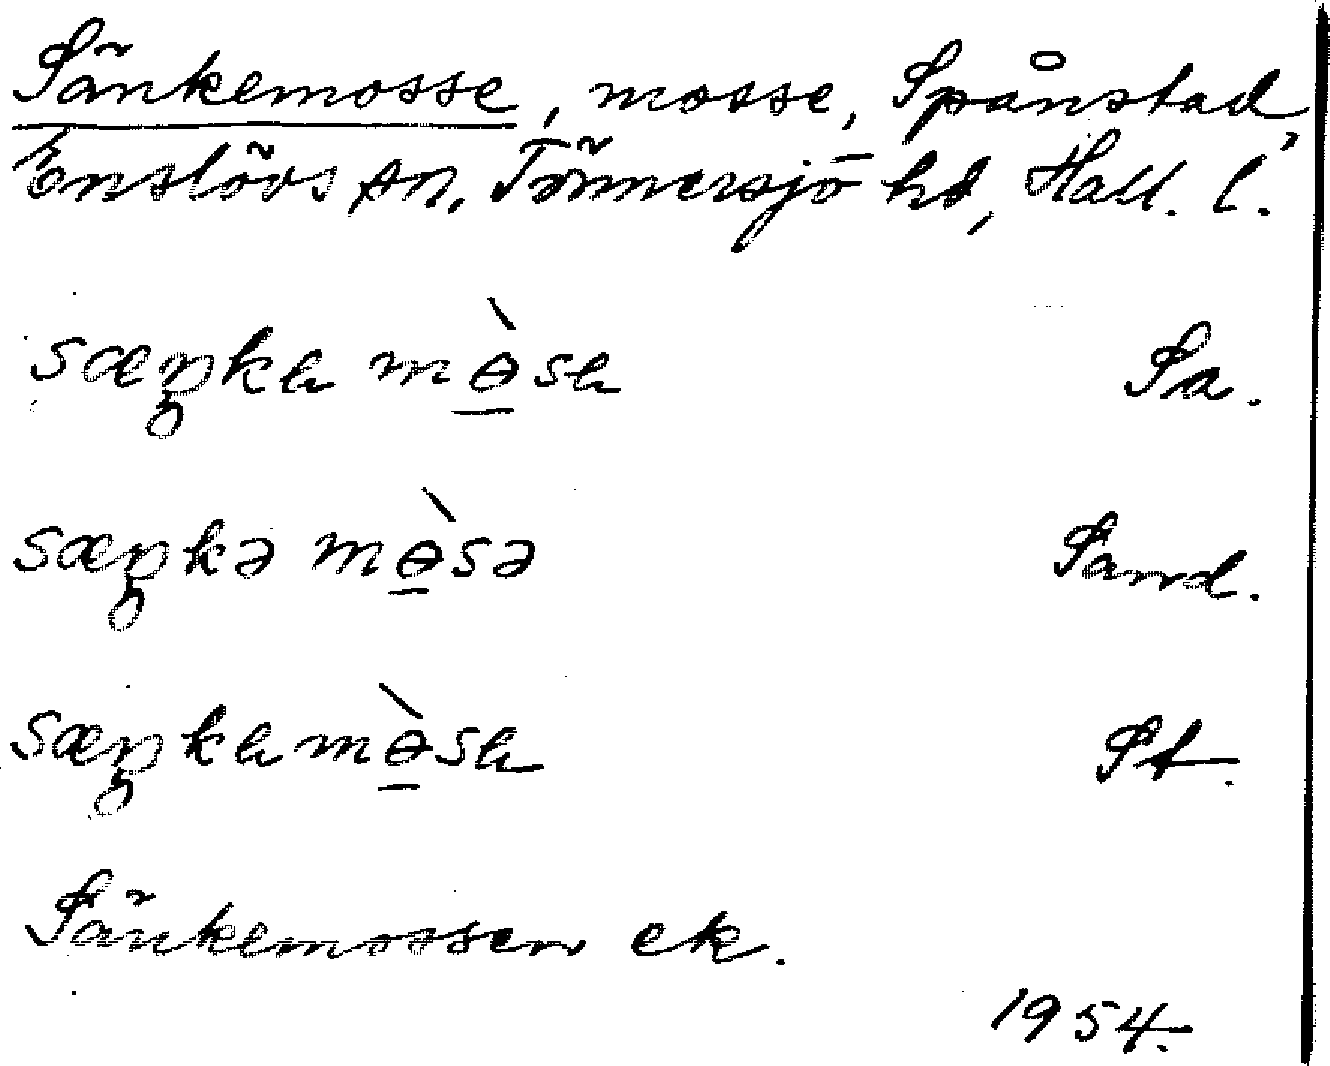 Sänkemosse, mosse, Spånstad,
Enslövs sn, Tönnersjö hd, Hall. l.
sæŋka mɵ̀sa Sa.
sæŋkə mɵ̀sə Sand.
sæŋkamɵ̀sa St.
Sänkemossen ek.
1954.